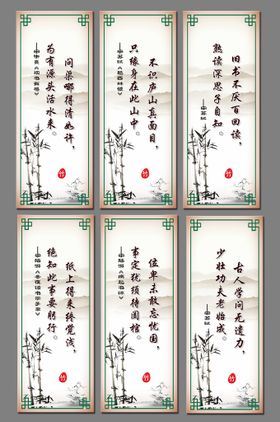 问渠哪得清如许，
为有源头活水来。
——宋·朱熹《观书有感》
竹
不识庐山真面目，
只缘身在此山中。
——宋·苏轼《题西林壁》
竹
旧书不厌百回读，
熟读深思子自知。
——宋·苏轼
竹
纸上得来终觉浅，
绝知此事要躬行。
——宋·陆游《冬夜读书示子聿》
竹
位卑未敢忘忧国，
事定犹须待阖棺。
——宋·陆游《病起书怀》
竹
古人学问无遗力，
少壮功夫老始成。
竹